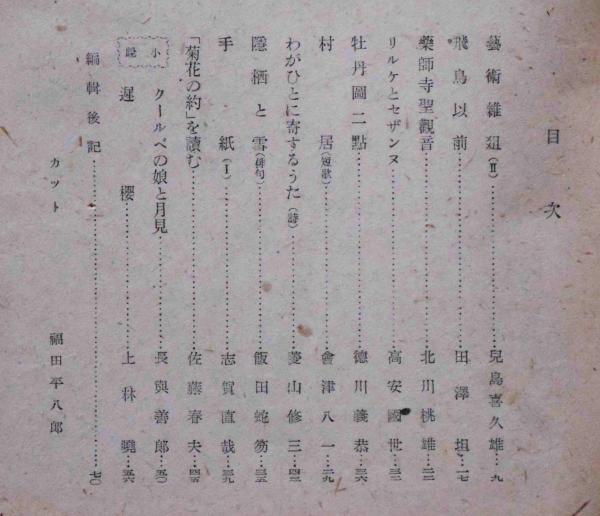 目次
藝術雜爼(Ⅱ)……兒島喜久雄…九
飛鳥以前……田澤坦…一七
藥師寺聖觀音……北川桃雄…二二
リルケとセザンヌ……高安國世…三二
牡丹圖二點……德川義恭…三六
村居(短歌)……會津八一…二九
わがひとに寄するうた(詩)……菱山修三…四三
隱栖と雪(俳句)……飯田蛇笏…三五
手紙(Ⅰ)……志賀直哉…三九
「菊花の約」を讀む……佐藤春夫…四五
小説
クールベの娘と月見……長與善郎…五〇
遲櫻……上林曉…五六
編輯後記……七〇
カット 福田平八郎